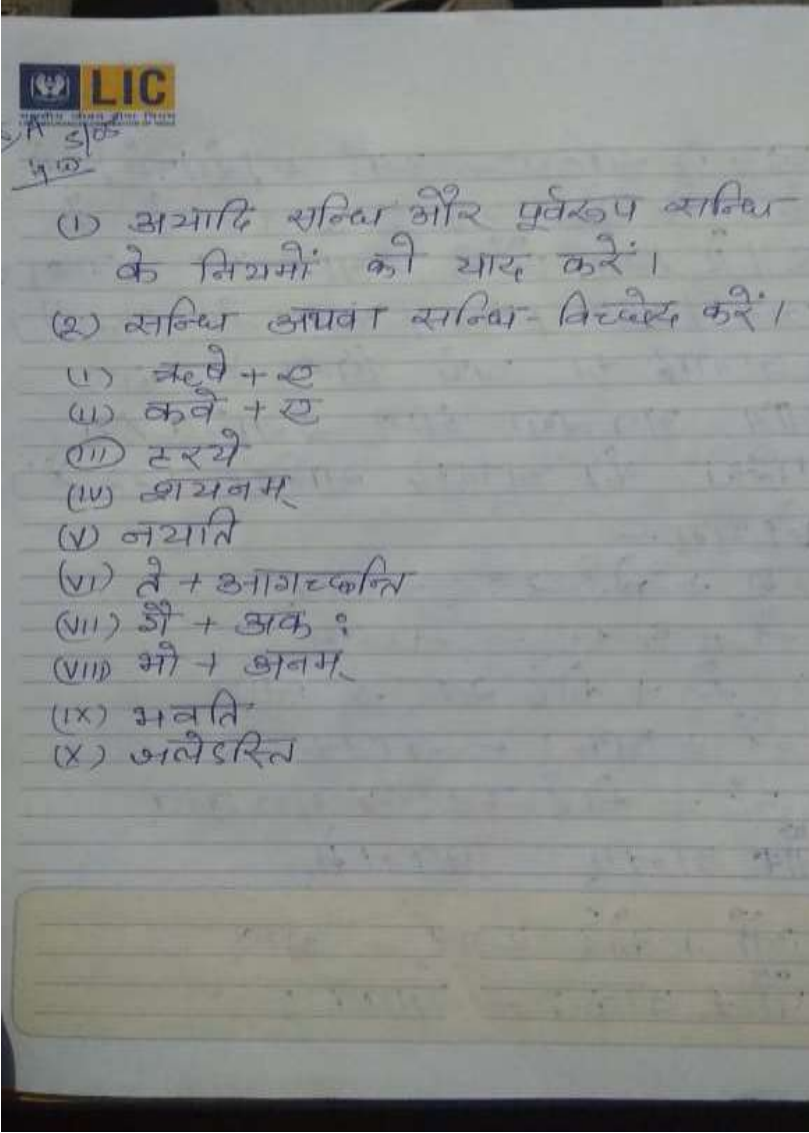 LIC
भारतीय जीवन बीमा निगम
(1) अयादि सन्धि और पूर्वरूप सन्धि
के नियमों को याद करें।
(2) सन्धि अथवा सन्धि-विच्छेद करें।
(i) ऋषे + ए
(ii) कवे + ए
(iii) हरये
(iv) शयनम्
(v) नयति
(vi) ते + आगच्छन्ति
(vii) गै + अक :
(viii) भो + अनम्
(ix) भवति
(x) जलेऽस्ति